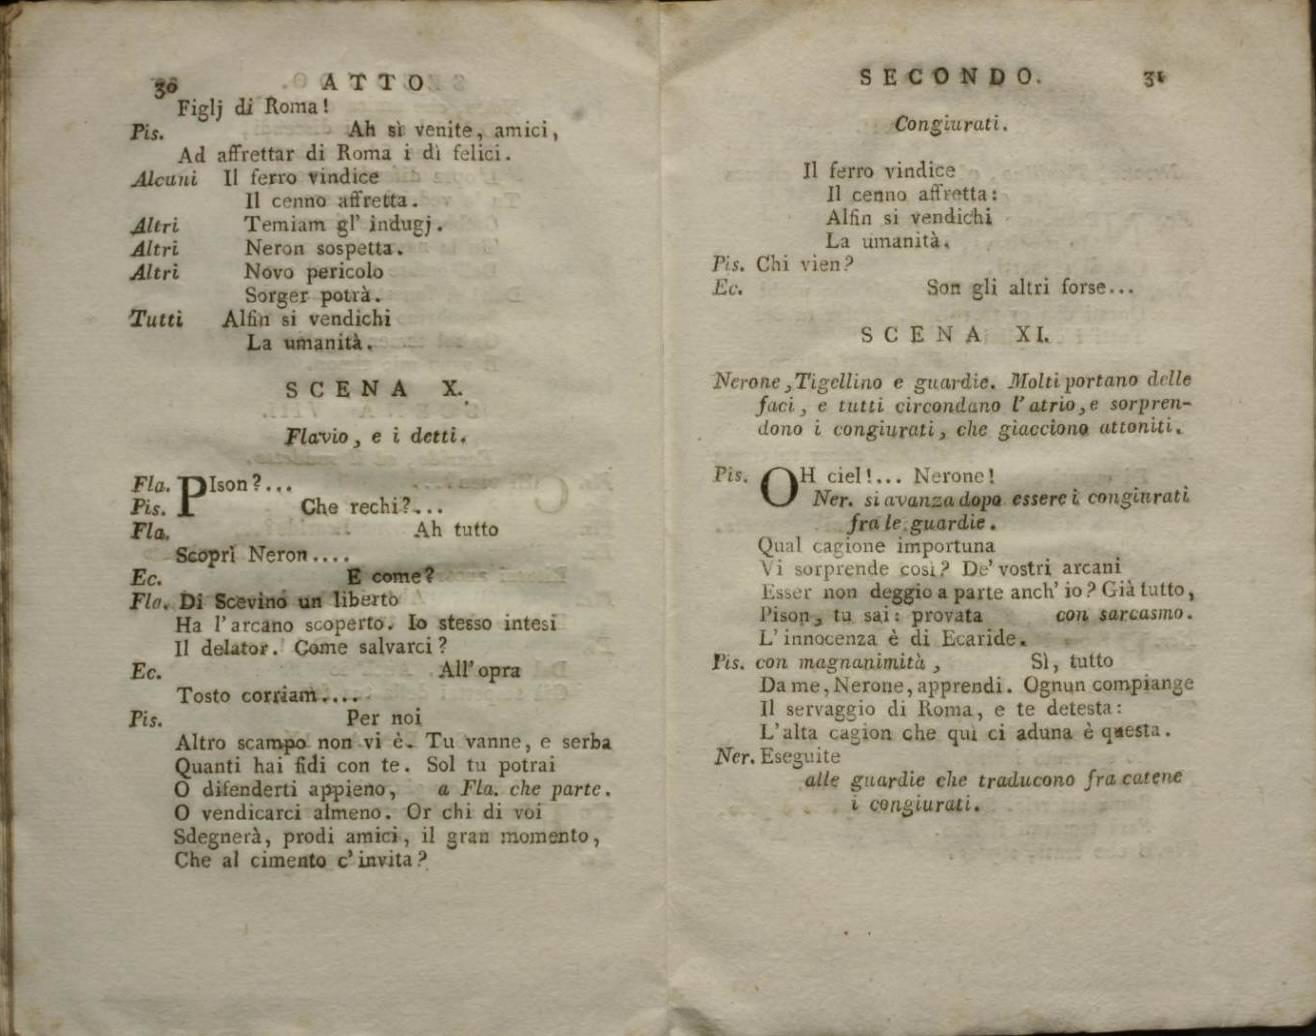 30 ATTO
Figlj di Roma!
Pis. Ah sì venite, amici,
Ad affrettar di Roma i dì felici.
Alcuni Il ferro vindice
Il cenno affretta.
Altri Temiam gl' indugj.
Altri Neron sospetta.
Altri Novo pericolo
Sorger potrà.
Tutti Alfin si vendichi
La umanità.
SCENA X.
Flavio, e i detti.
Fla. PIson?...
Pis. Che rechi?...
Fla. Ah tutto
Scoprì Neron....
Ec. E come?
Fla. Di Scevino un liberto
Ha l'arcano scoperto. Io stesso intesi
Il delator. Come salvarci?
Ec. All' opra
Tosto corriam....
Pis. Per noi
Altro scampo non vi è. Tu vanne, e serba
Quanti hai fidi con te. Sol tu potrai
O difenderti appieno, a Fla. che parte.
O vendicarci almeno. Or chi di voi
Sdegnerà, prodi amici, il gran momento,
Che al cimento c' invita?
SECONDO. 31
Congiurati.
Il ferro vindice
Il cenno affretta:
Alfin si vendichi
La umanità.
Pis. Chi vien?
Ec. Son gli altri forse...
SCENA XI.
Nerone, Tigellino e guardie. Molti portano delle
faci, e tutti circondano l'atrio, e sorpren-
dono i congiurati, che giacciono attoniti.
Pis. OH ciel!... Nerone!
Ner. si avanza dopo essere i congiurati
fra le guardie.
Qual cagione importuna
Vi sorprende così? De' vostri arcani
Esser non deggio a parte anch' io? Già tutto,
Pison, tu sai: provata con sarcasmo.
L' innocenza è di Ecaride.
Pis. con magnanimità, Sì, tutto
Da me, Nerone, apprendi. Ognun compiange
Il servaggio di Roma, e te detesta:
L'alta cagion che quì ci aduna è questa.
Ner. Eseguite
alle guardie che traducono fra catene
i congiurati.